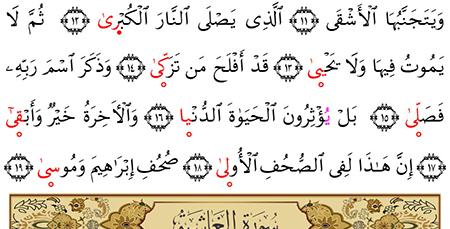 وَيَتَجَنَّبُهَا ٱلْأَشْقَى ۝١١ ٱلَّذِى يَصْلَى ٱلنَّارَ ٱلْكُبْرَىٰ ۝١٢ ثُمَّ لَا
يَمُوتُ فِيهَا وَلَا يَحْيَىٰ ۝١٣ قَدْ أَفْلَحَ مَن تَزَكَّىٰ ۝١٤ وَذَكَرَ ٱسْمَ رَبِّهِۦ
فَصَلَّىٰ ۝١٥ بَلْ يُؤْثِرُونَ ٱلْحَيَوٰةَ ٱلدُّنْيَا ۝١٦ وَٱلْأَخِرَةُ خَيْرٌ وَأَبْقَىٰٓ
۝١٧ إِنَّ هَٰذَا لَفِى ٱلصُّحُفِ ٱلْأُولَىٰ ۝١٨ صُحُفِ إِبْرَٰهِيمَ وَمُوسَىٰ ۝١٩
سُورَةُ ٱلْغَاشِيَةِ